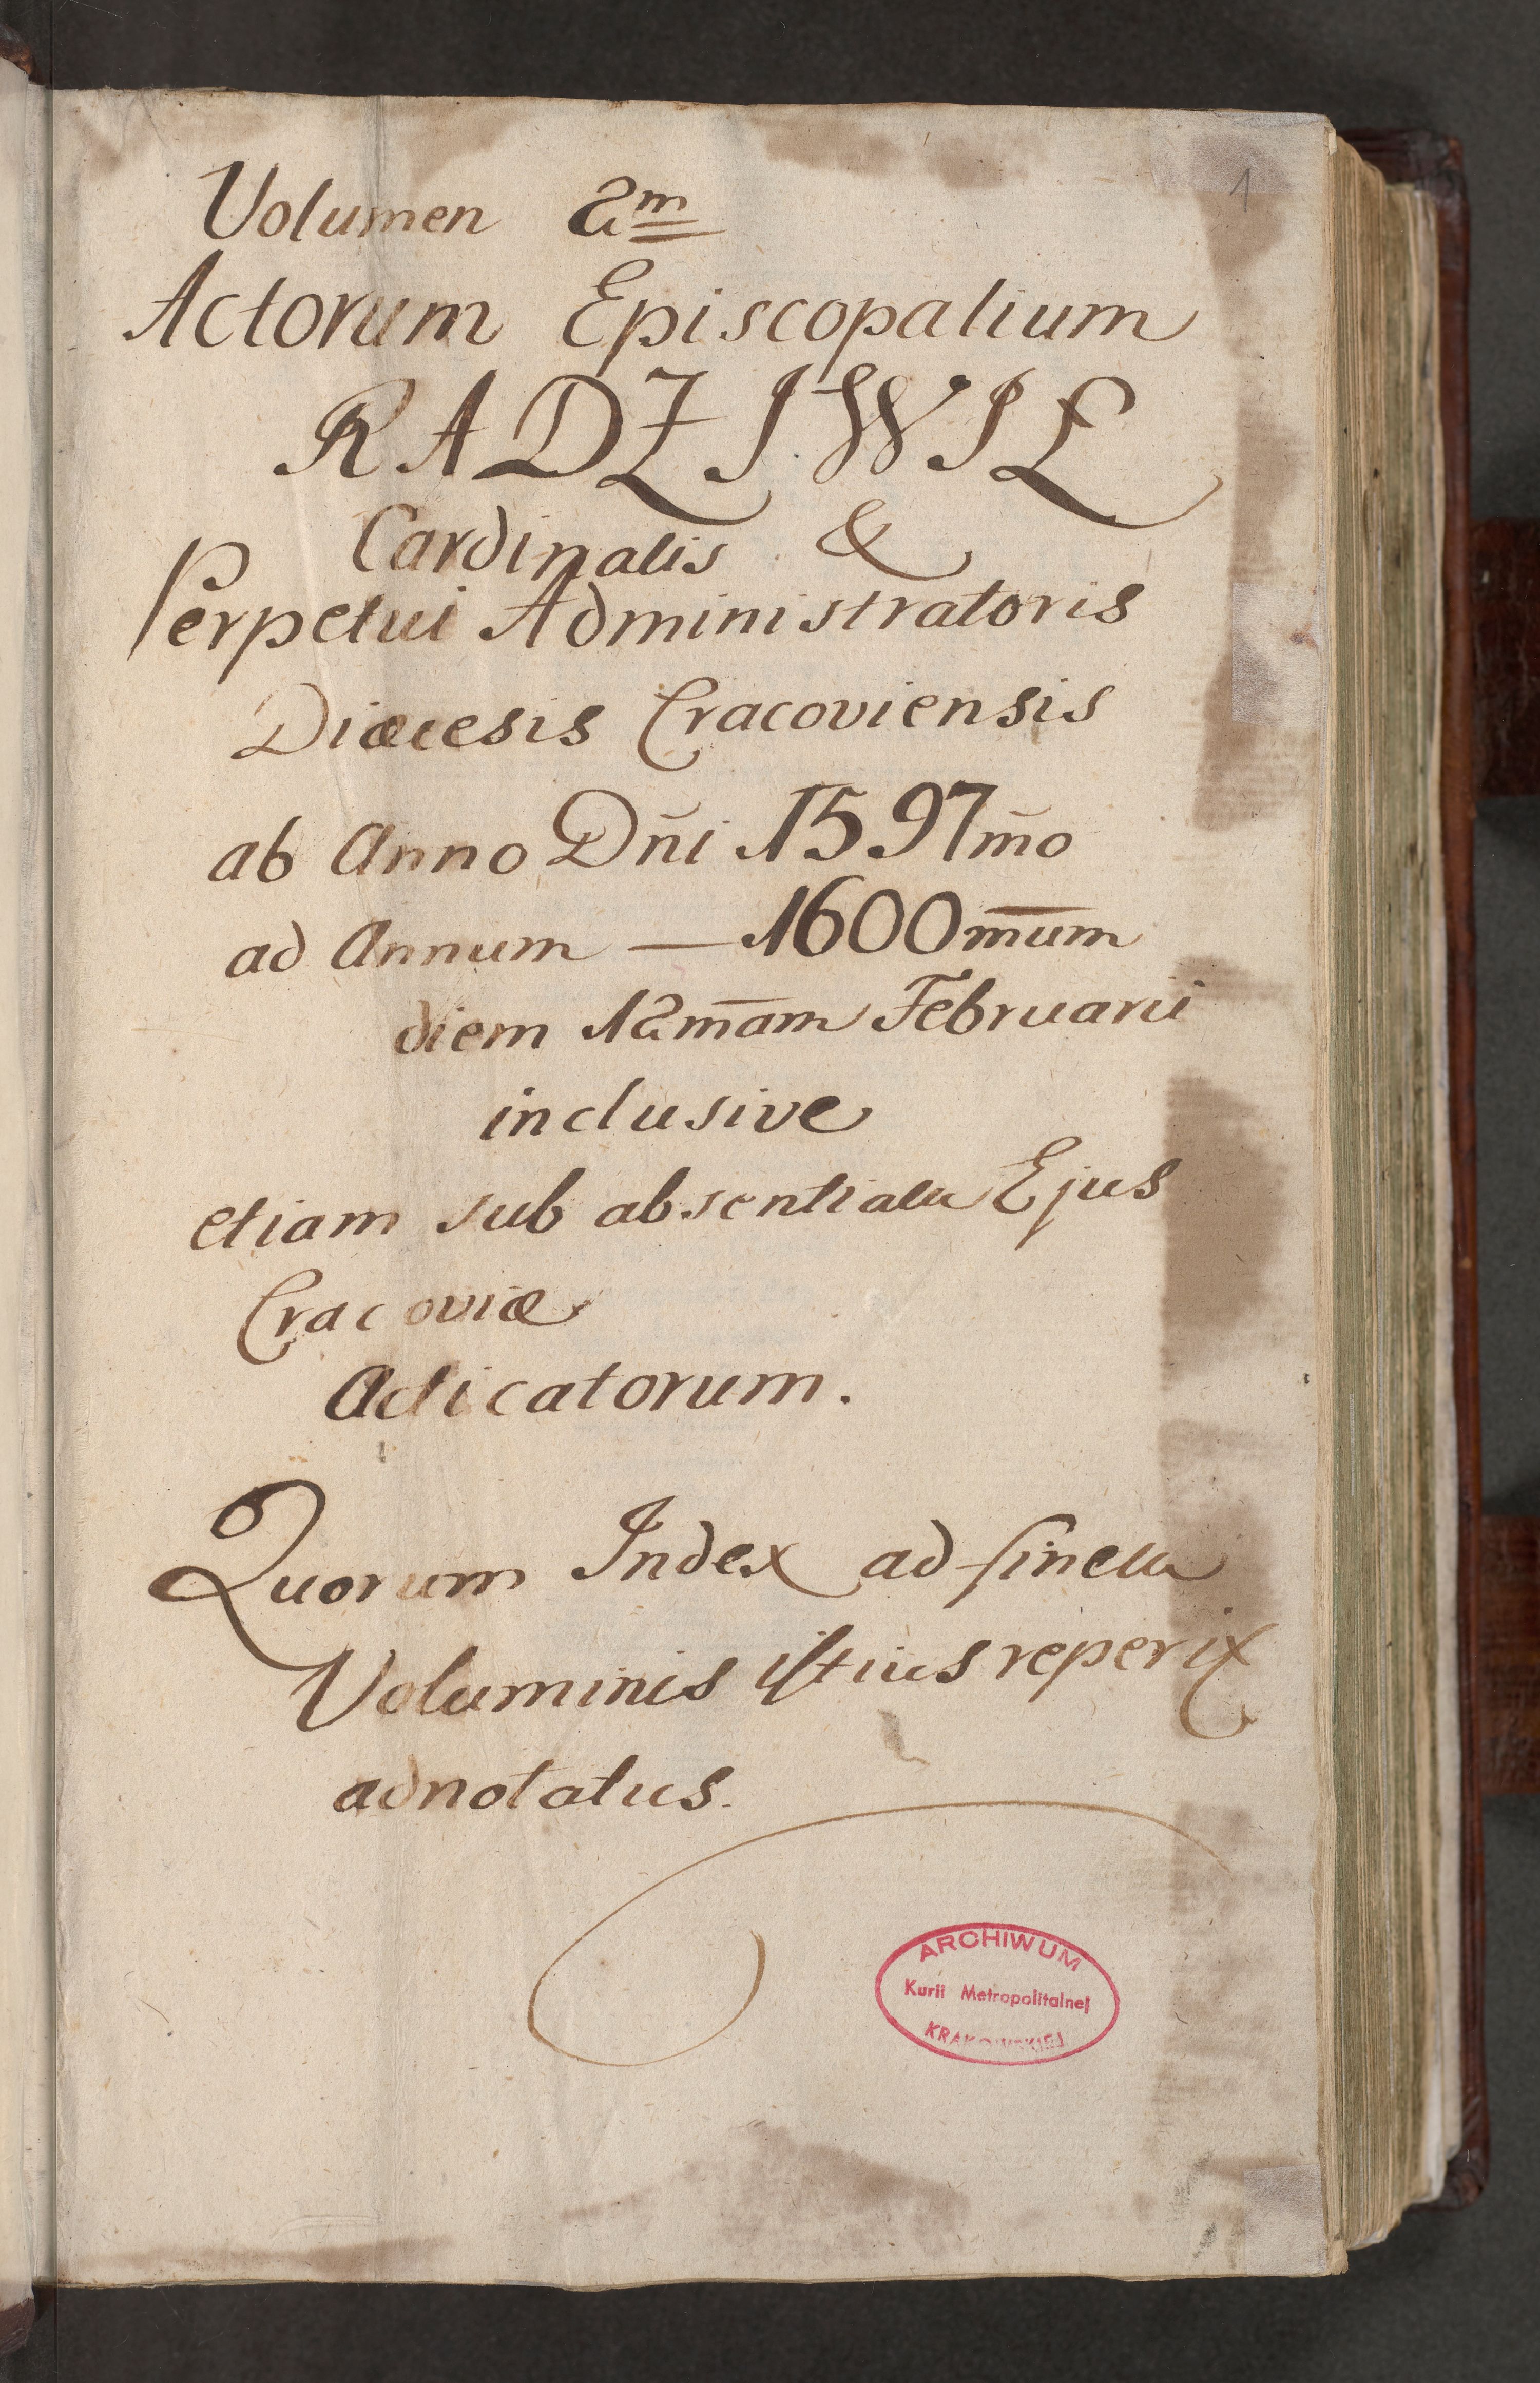 1
Volumen 2m
Actorum Episcopalium
RADZIWIŁ
Cardinalis &
Perpetui Administratoris
Diæcesis Cracoviensis
ab Anno Dn̄i 1597m̄o
ad Annum — 1600m̄um
diem 12m̄am Februarii
inclusive
etiam sub absentiam Ejus
Cracoviæ
Acticatorum.
Quorum Index ad finem
Voluminis istius reperix
adnotatus.
ARCHIWUM
Kurii Metropolitalnej
KRAKOWSKIEJ